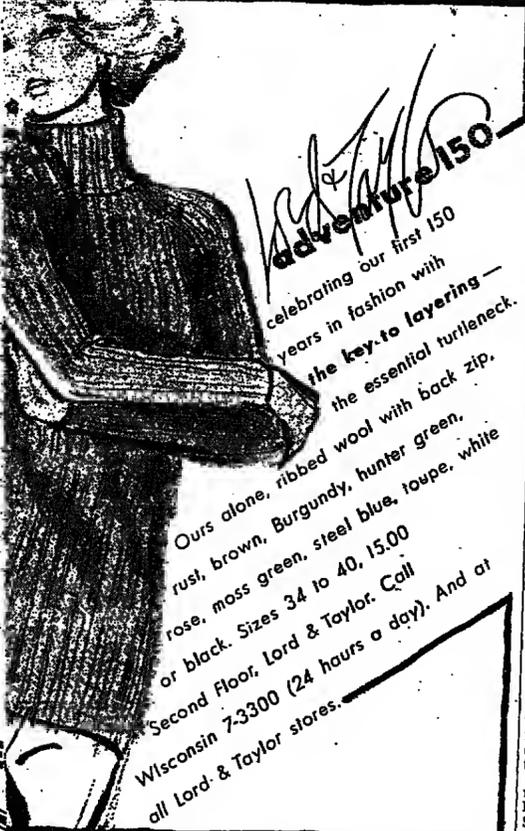 Lord & Taylor
adventure 150
celebrating our first 150
years in fashion with
the key to layering—
the essential turtleneck.
Ours alone, ribbed wool with back zip,
rust, brown, Burgundy, hunter green,
rose, moss green, steel blue, toupe, white
or black. Sizes 34 to 40, 15.00
Second Floor, Lord & Taylor. Call
WIsconsin 7-3300 (24 hours a day). And at
all Lord & Taylor stores.